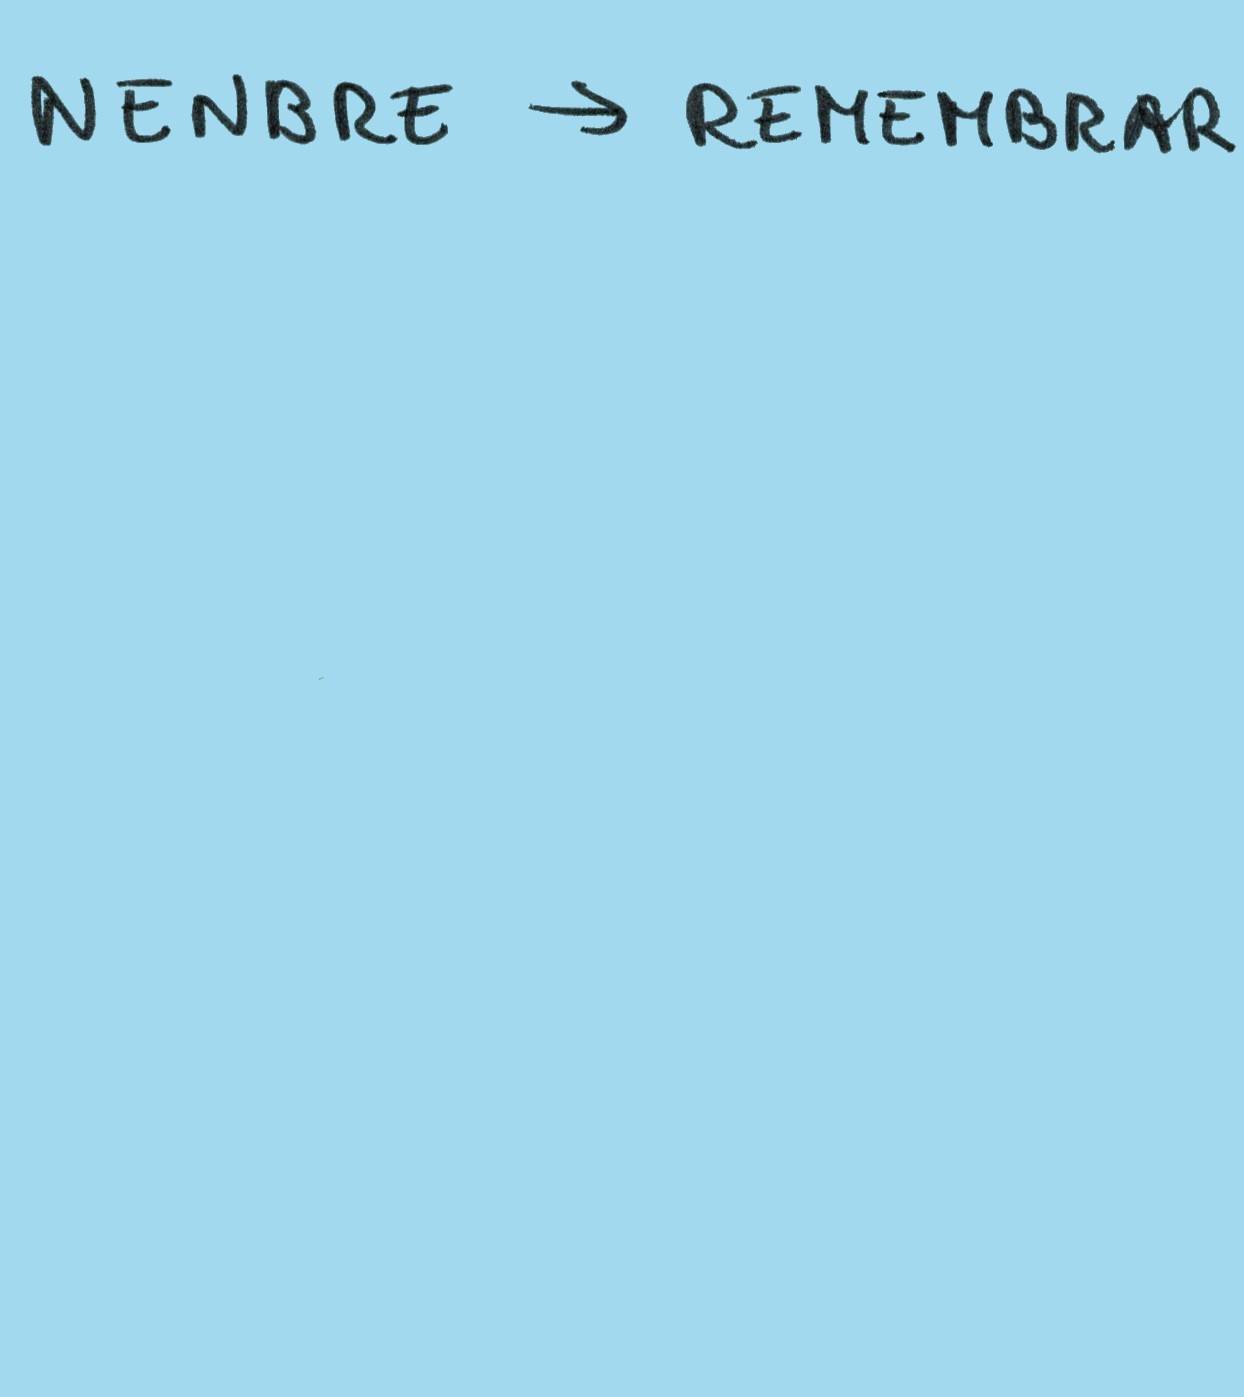 NENBRE → REMEMBRAR